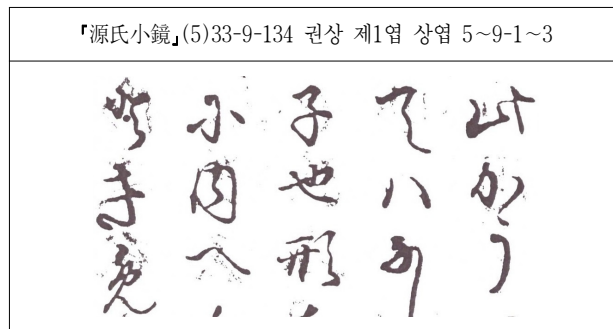 『源氏小鏡』(5)33-9-134 권상 제1엽 상엽 5~9-1~3
此かう
てハ
子也形
小内へ
き免